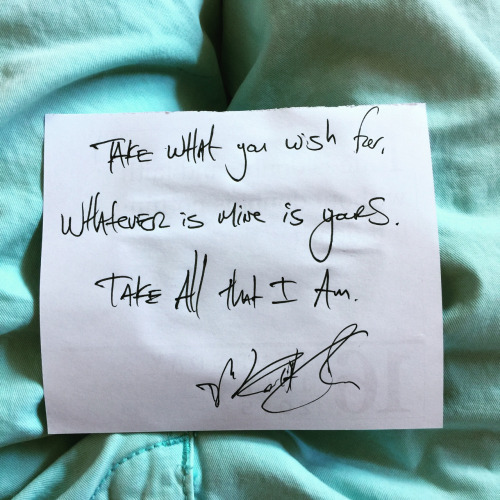 TAKE WHAT you wish for.
WHATEVER is Mine is yours.
TAKE All that I Am.